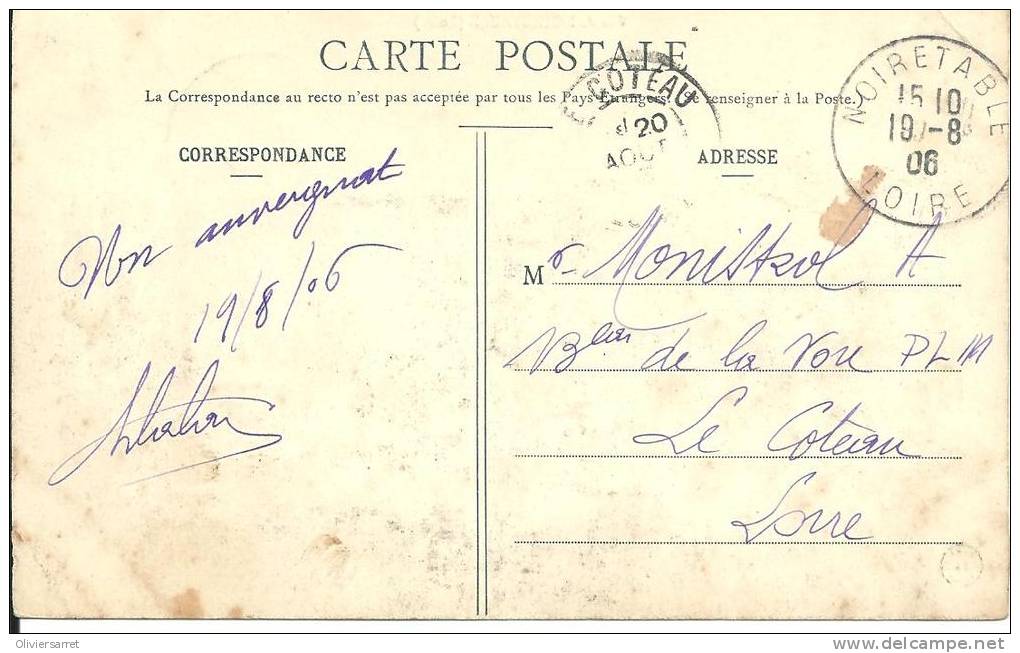 CARTE POSTALE
La Correspondance au recto n'est pas acceptée par tous les Pays Etrangers. (Se renseigner à la Poste.)
COTEAU
20
AOUT
NOIRETABLE
15 10
19 -8
06
LOIRE
CORRESPONDANCE
ADRESSE
auvergnat
19/8/06
Mr Monistrol A
de la Voie PLM
Le Coteau
Loire
Oliviersarret
http://www.delcampe.net